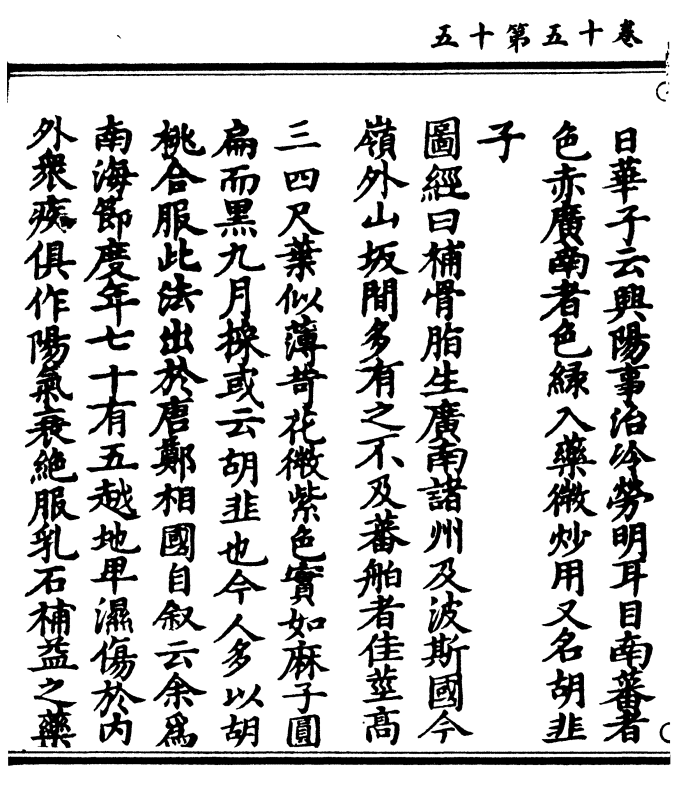 卷十五第十五
日華子云興陽事治冷勞明耳目南蕃者
色赤廣南者色緑入藥微炒用又名胡韭
子
圖經曰補骨脂生廣南諸州及波斯國今
嶺外山坂間多有之不及蕃舶者佳莖高
三四尺葉似薄荷花微紫色實如麻子圓
扁而黑九月採或云胡韭也今人多以胡
桃合服此法出於唐鄭相國自叙云余爲
南海節度年七十有五越地卑濕傷於内
外衆疾俱作陽氣衰絶服乳石補益之藥